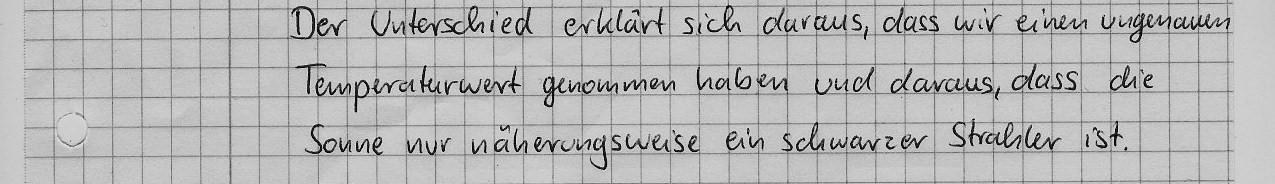 Der Unterschied erklärt sich daraus, dass wir einen ungenauen
Temperaturwert genommen haben und daraus, dass die
Sonne nur näherungsweise ein schwarzer Strahler ist.